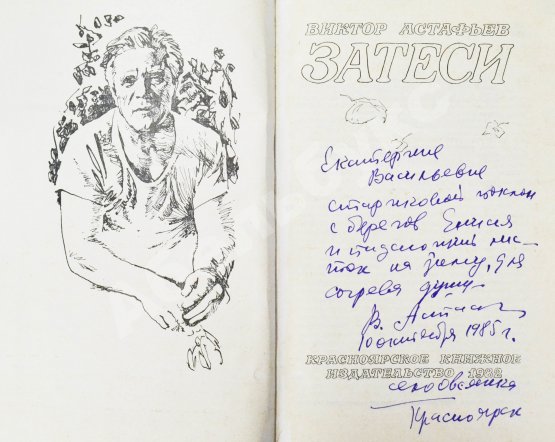 ВИКТОР АСТАФЬЕВ
ЗАТЕСИ
Екатерине
Васильевне
стариковой поклон
с берегов Енисея
и
на зиму, для
согрева души
В. Астафьев
10 октября 1985 г.
КРАСНОЯРСКОЕ КНИЖНОЕ
ИЗДАТЕЛЬСТВО 1982
село Овсянка
Красноярск